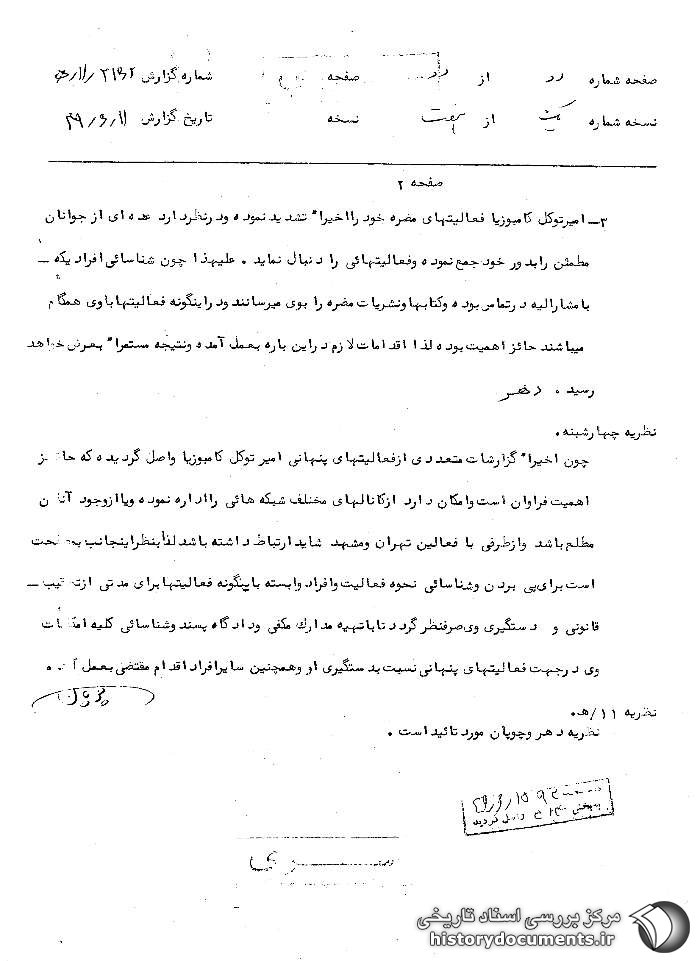 صفحه شماره دو از دو صفحه شماره گزارش ۲۱۹۲/
نسخه شماره یک از هفت نسخه تاریخ گزارش ۴۹/۶/۱۱
صفحه ۲
۳ـ امیرتوکل کامبوزیا فعالیتهای مضره خود را اخیرا" تشدید نموده ودرنظردارد عده ای از جوانان
مطمئن رابدور خودجمع نموده وفعالیتهائی را دنبال نماید . علیهذا چون شناسائی افرادیکه ـ
بامشارالیه درتماس بوده وکتابها ونشریات مضره را بوی میرسانند ودراینگونه فعالیتهاباوی همگام
میباشند حائز اهمیت بوده لذا اقدامات لازم دراین باره بعمل آمده ونتیجه مستمرا" بعرض خواهد
رسید . دهر
نظریه چهارشنبه .
چون اخیرا" گزارشات متعددی ازفعالیتهای پنهانی امیر توکل کامبوزیا واصل گردیده که حائز
اهمیت فراوان است وامکان دارد ازکانالهای مختلف شبکه هائی رااداره نموده ویاازوجود آنان
مطلع باشد وازطرفی با فعالین تهران ومشهد شاید ارتباط داشته باشد لذابنظراینجانب بمصلحت
است برای پی بردن وشناسائی نحوه فعالیت وافراد وابسته باینگونه فعالیتهابرای مدتی ازتعقیب ـ
قانونی و دستگیری وی صرفنظر گردد تاباتهیه مدارک مکفی ودادگاه پسند وشناسائی کلیه امکانات
وی درجهت فعالیتهای پنهانی نسبت بدستگیری او وهمچنین سایرافراد اقدام مقتضی بعمل آید .
نظریه ۱۱/هـ .
نظریه دهر وچوپان مورد تائید است .
به بخش ۳۱۲ واصل گردید
سری
مرکز بررسی اسناد تاریخی
historydocuments.ir